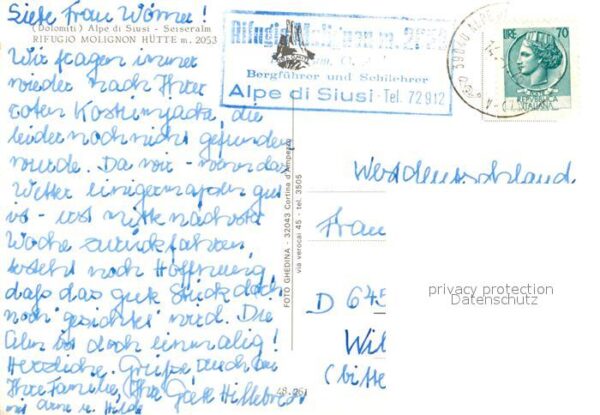 Liebe Frau Wörner!
(Dolomiti) Alpe di Siusi - Seiseralm
RIFUGIO MOLIGNON HÜTTE m. 2053
Wir fragen immer
wieder nach Ihrer
roten Kostümjacke, die
leider noch nicht gefunden
wurde. Da wir - wenn das
Wetter einigermaßen gut
is - erst Mitte nächster
Woche zurückfahren
besteht noch Hoffnung,
daß das gute Stück doch
noch gesichtet wird. Die
Alm ist doch einmalig!
Herzliche Grüße auch an
Ihre Familie, Ihre Hillebrecht
mit Arne u. Hilde
Bergführer und Schilehrer
Alpe di Siusi - Tel. 72912
39040
LIRE 70
REPUBBLICA
ITALIANA
FOTO GHEDINA - 32043 Cortina d'Ampezzo
via verocai 45 - tel. 3505
48-261
Westdeutschland
Frau
privacy protection
Datenschutz
D 645
Wil
(bitte